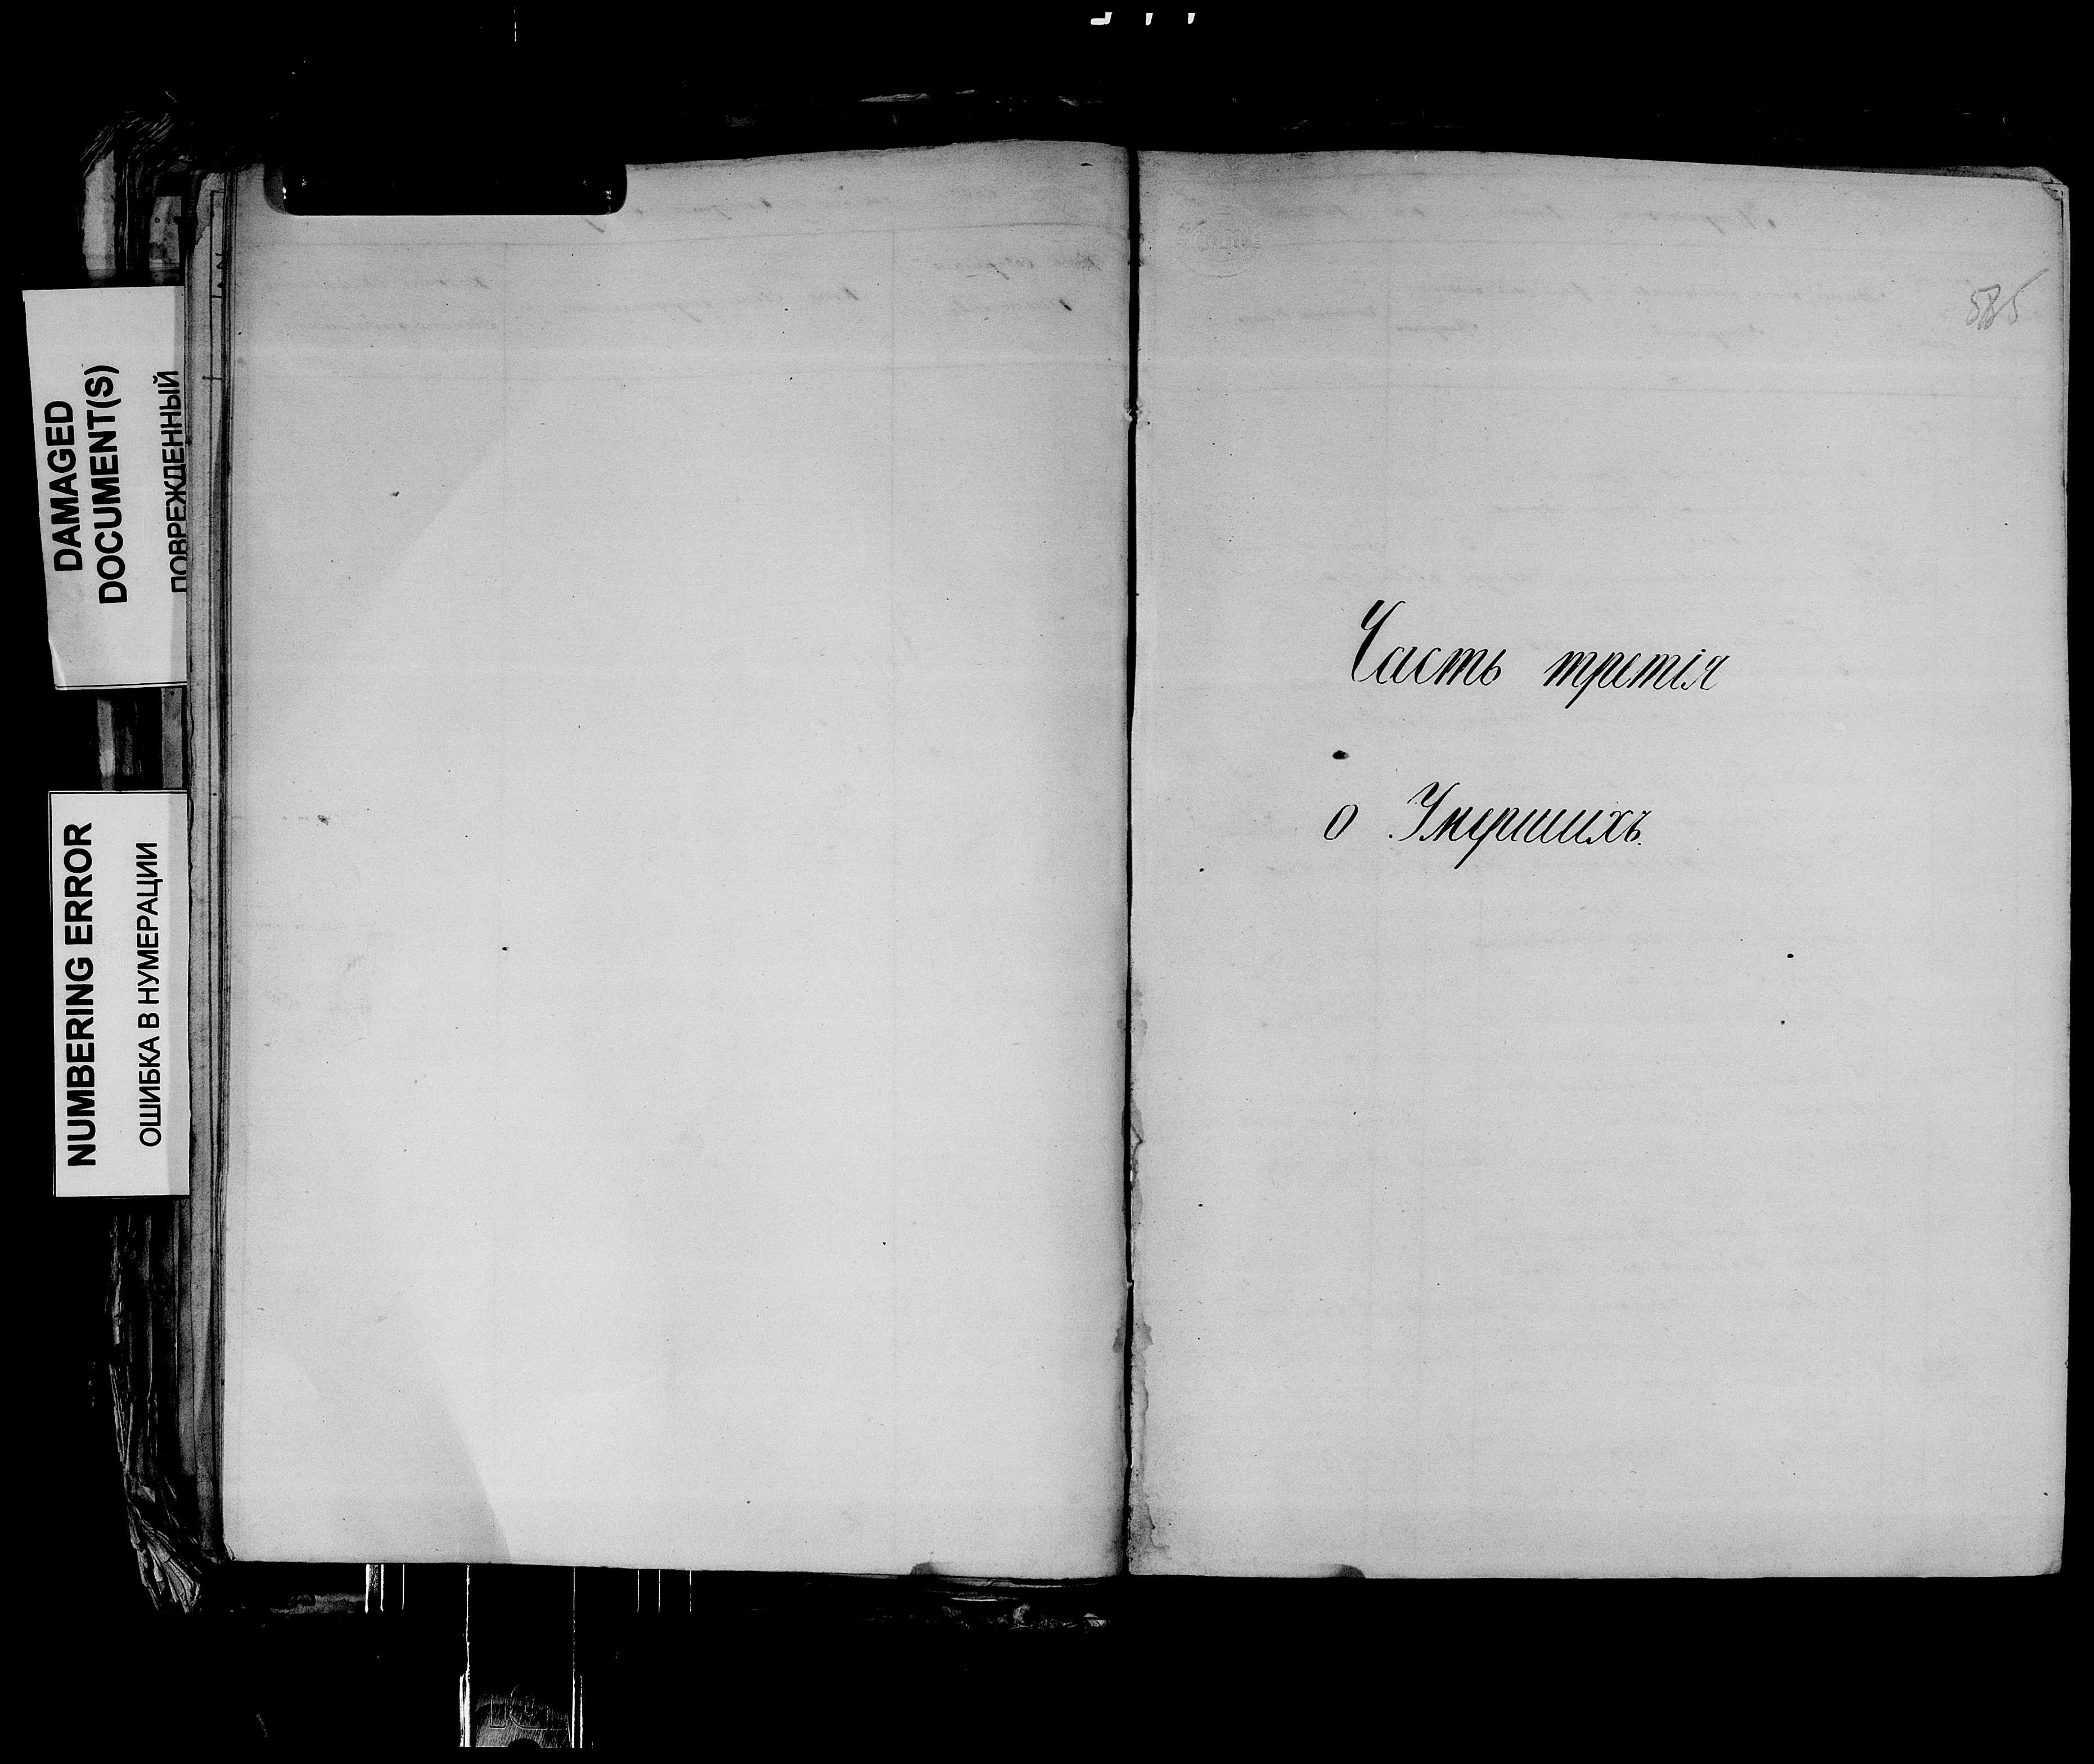 DAMAGED
DOCUMENT(S)
ПОВРЕЖДЕННЫЙ
NUMBERING ERROR
ОШИБКА В НУМЕРАЦИИ
585
Часть третія
о Умершихъ.